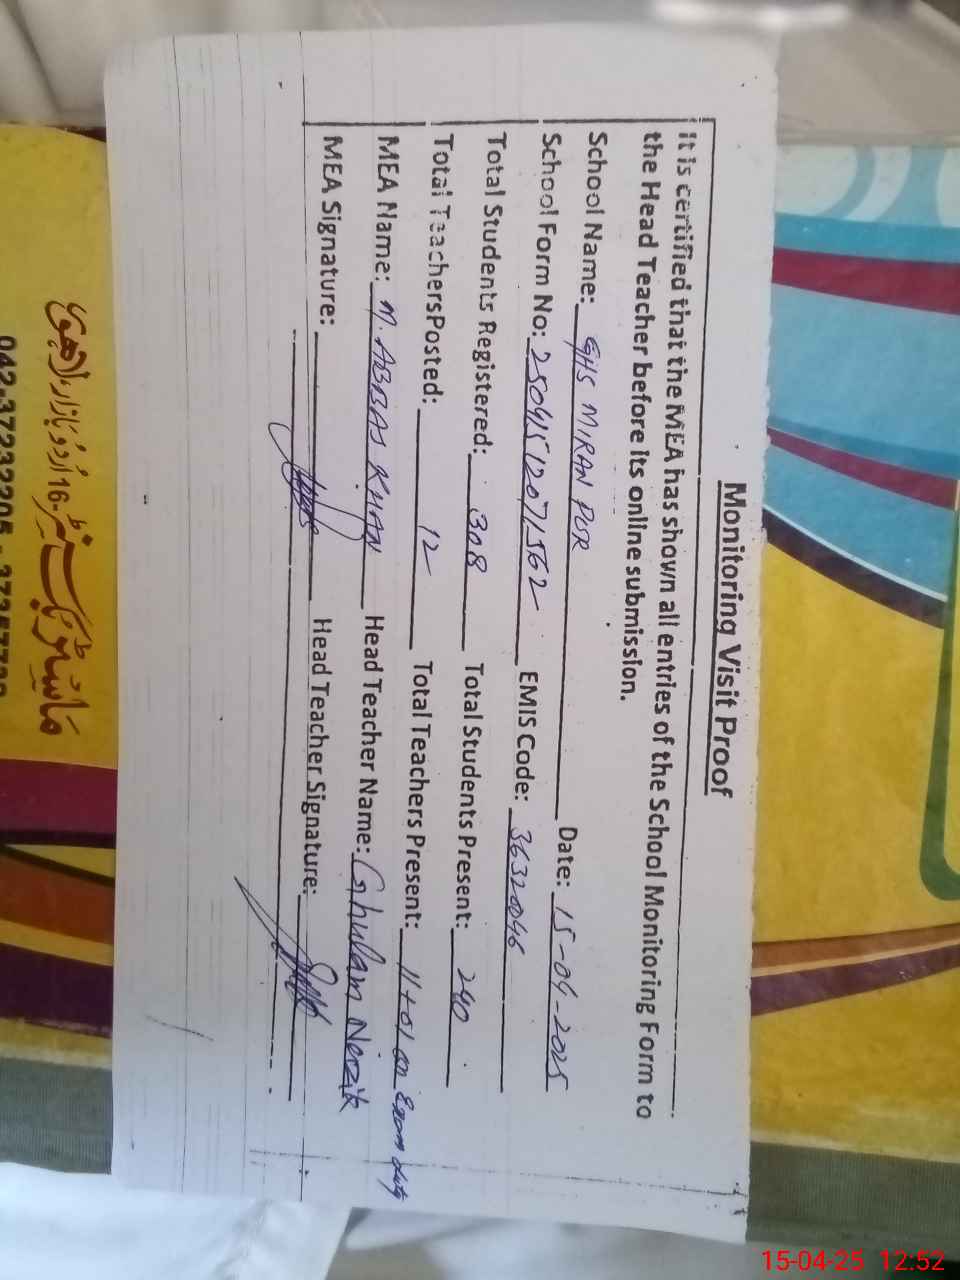 Monitoring Visit Proof
It is certified that the MEA has shown all entries of the School Monitoring Form to
the Head Teacher before its online submission.
School Name: GHS MIRAN PUR Date: 15-04-2025
School Form No: 25041512071562 EMIS Code: 36320046
Total Students Registered: 308 Total Students Present: 240
Total TeachersPosted: 12 Total Teachers Present: 11+01 on Exam duty
MEA Name: M. ABBAS KHAN Head Teacher Name: Ghulam Nazik
MEA Signature: Head Teacher Signature:
16-اُردو بازار، لاهور
15-04-25 12:52